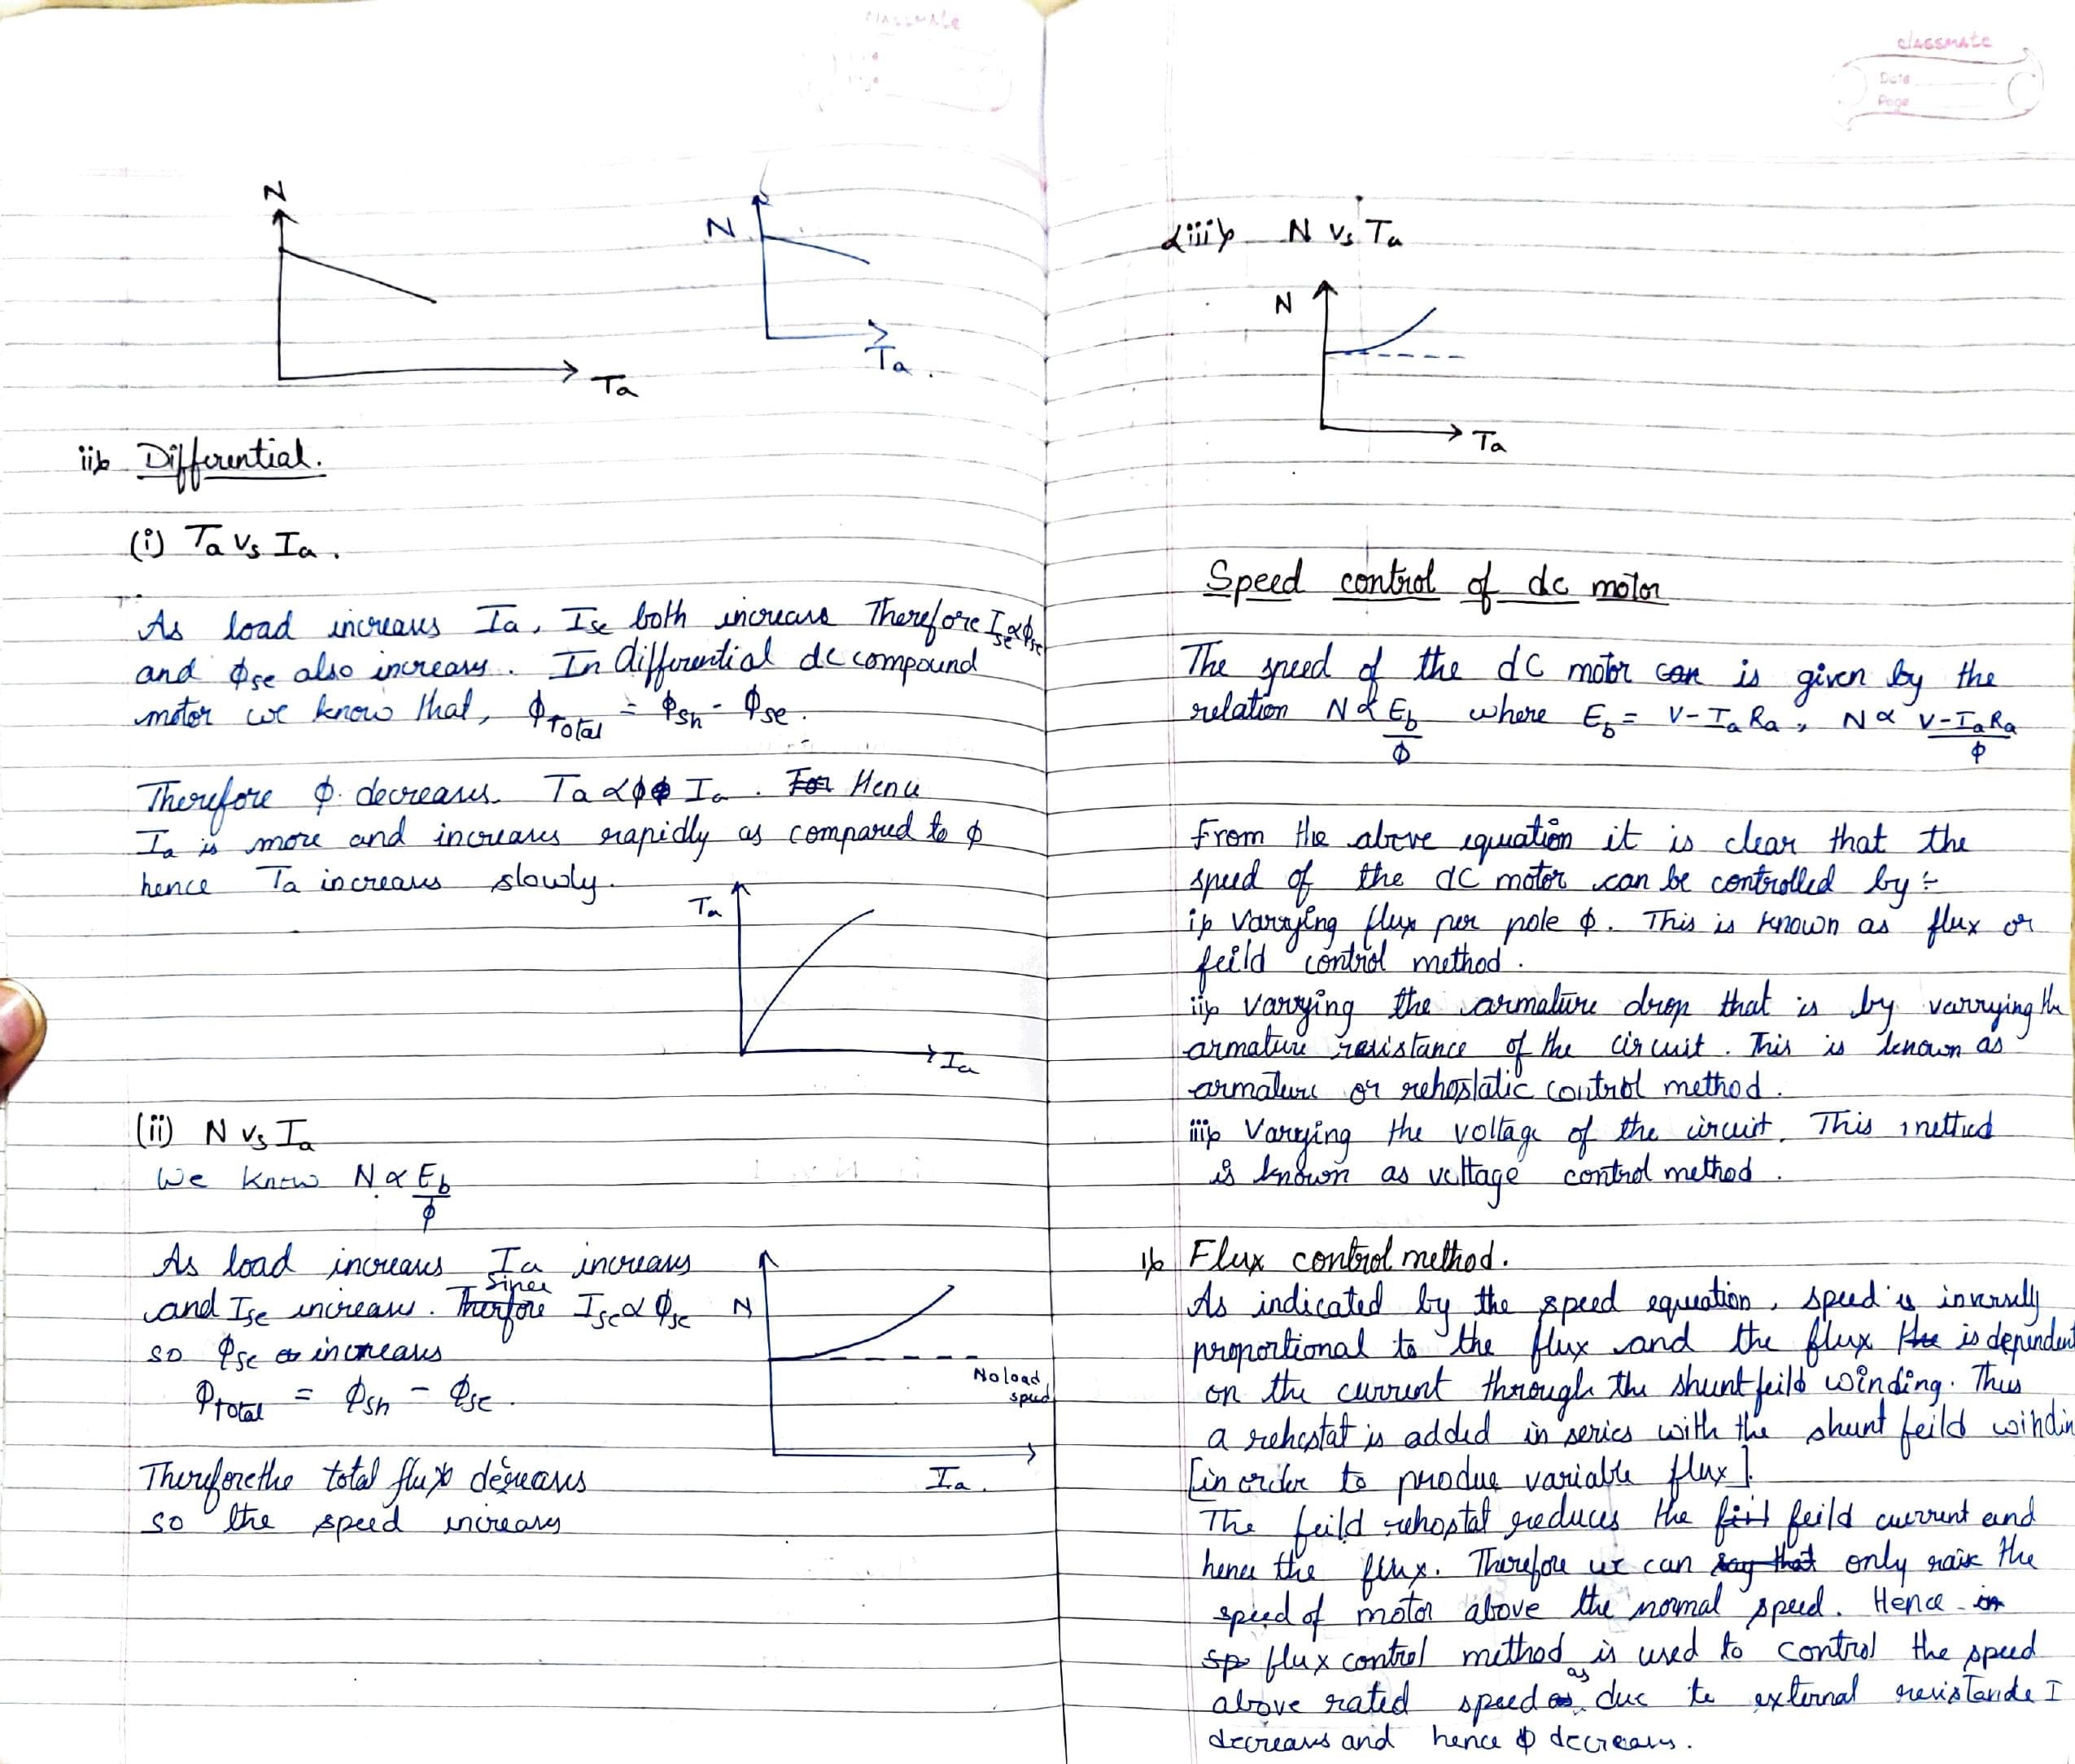 classmate
N
Ta
N
Ta.
ii) Differential.
(i) Ta vs Ia.
As load increases Ia, Ise both increase Therefore Ise∝ϕse
and ϕse also increases. In differential dc compound
motor we know that, ϕTotal = ϕsh - ϕse.
Therefore ϕ decreases. Ta∝ϕ Ia. For Hence
Ia is more and increases rapidly as compared to ϕ
hence Ta increases slowly.
Ta
Ia
(ii) N vs Ia
We know N ∝ Eb/ϕ
As load increases Ia increases
and Ise increases. Therefore since Ise∝ϕse
so ϕse increases
ϕtotal = ϕsh - ϕse.
N
No load
speed
Ia.
Therefore the total flux decreases
so the speed increases
classmate
Date
Page
(iii) N vs Ta
N
Ta
Speed control of dc motor
The speed of the dC motor can is given by the
relation N ∝ Eb/ϕ where Eb = V-IaRa, N ∝ V-IaRa/ϕ
From the above equation it is clear that the
speed of the dC motor can be controlled by:-
i) Varrying flux per pole ϕ. This is known as flux or
feild control method.
ii) varrying the armature drop that is by varrying the
armature resistance of the circuit. This is known as
armature or rehostatic control method.
iii) Varrying the voltage of the circuit. This method
is known as voltage control method.
1) Flux control method.
As indicated by the speed equation, speed is inversely
proportional to the flux and the flux the is dependent
on the current through the shunt feild winding. Thus
a rehostat is added in series with the shunt feild windin
[in order to produe variable flux].
The feild rehostat reduces the feild current and
hence the flux. Therefore we can say that only raise the
speed of motor above the normal speed. Hence in
sp flux control method is used to control the speed
above rated speed as due to external resistance I
decreases and hence ϕ decreases.